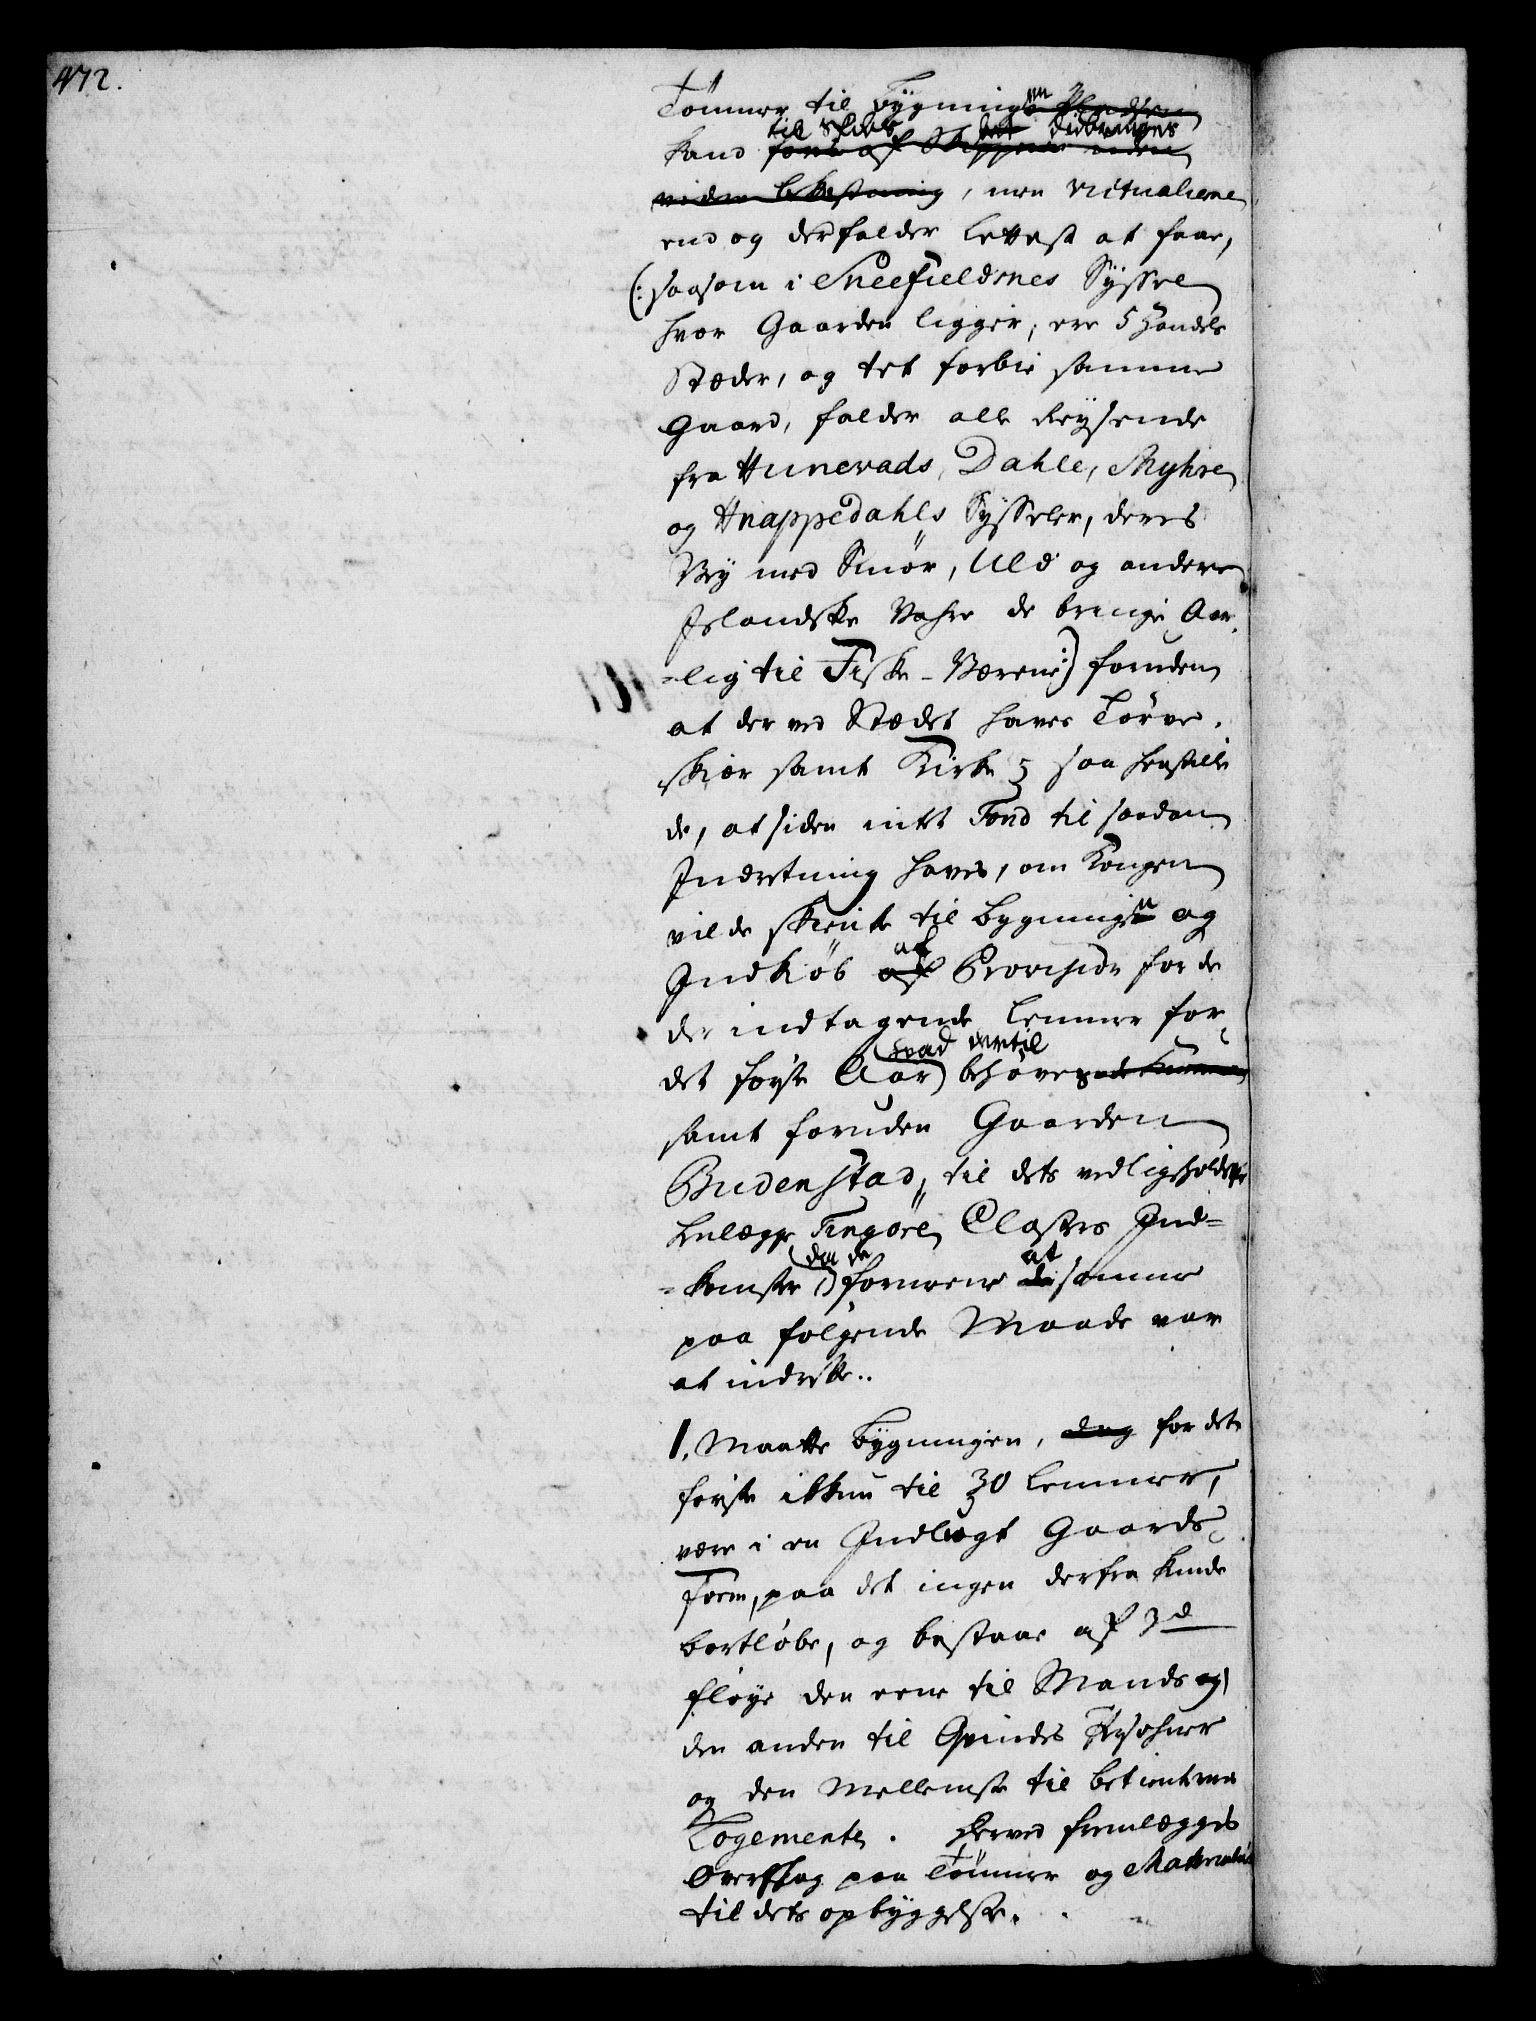 472.
Tømmer til Bygningen
til Skibs didbringes
kand føres af Skipperne uden
viden bekostning, men Victualierne
end og der falder lettest at faae,
(: saasom i Sneefieldsnes Syssel
hvor Gaarden ligger, ere 5 Handels
Stæder, og tet forbie samme
Gaard, falder alle Reysende
fra Hunevads, Dahle, Myhre
og Hnappedahls Sysseler, deres
Vey med Smør, Uld og andere
Islandske Vahre de bringe Aar-
=lig til Fiske-Værene :) foruden
at der ved Stædet haves Tørve-
skiær samt Kirke; saa henstille
de, at siden intet Fond til saadan
Indretning haves, om Kongen
vilde skienke til Bygningen og
Indkiøb af Provision for de
der indtagende Lemmer for
hvad dertil
det første Aar behøves
samt foruden Gaarden
Budenstad, til dets vedligeholdelse
henlægge Tingøre Closters Ind=
da de at
=komster formeene samme
paa følgende Maade var
at indrette..
1. Maatte Bygningen, dog for det
første ikkun til 30 Lemmer,
være i en Indlugt Gaards
Form, paa det ingen derfra kunde
bortløbe, og bestaae af 3de
fløye den eene til Mands og
den anden til Qvindes Persohner
og den Mellemste til betienternes
Logemente. Herved fremlægges
Overslag paa Tømmer og Materialier
til dets opbyggelse.